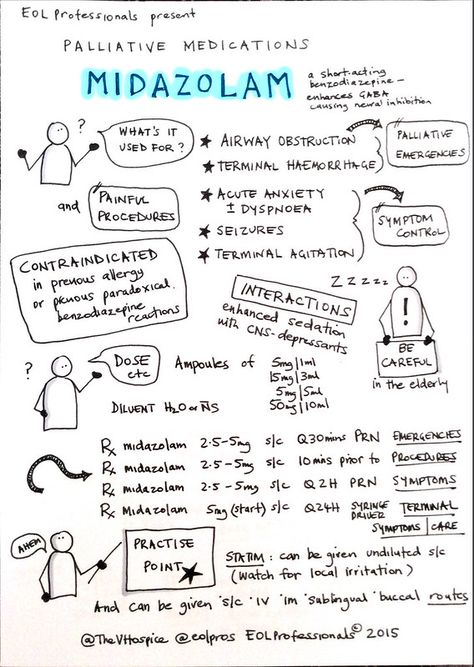 EOL Professionals present
PALLIATIVE MEDICATIONS
MIDAZOLAM
a short-acting
benzodiazepine –
enhances GABA
causing neural inhibition
?
WHAT'S IT
USED FOR?
★ AIRWAY OBSTRUCTION
★ TERMINAL HAEMORRHAGE
PALLIATIVE
EMERGENCIES
and
PAINFUL
PROCEDURES
★ ACUTE ANXIETY
± DYSPNOEA
★ SEIZURES
★ TERMINAL AGITATION
SYMPTOM
CONTROL
CONTRAINDICATED
in previous allergy
or previous paradoxical
benzodiazepine
reactions
INTERACTIONS
enhanced sedation
with CNS-depressants
ZZZZZ
!
BE
CAREFUL
in the elderly
?
DOSE
etc
Ampoules of
5mg/1ml
15mg/3ml
5mg/5ml
50mg/10ml
DILUENT H2O or NS
Rx midazolam 2.5-5mg s/c Q30mins PRN EMERGENCIES
Rx midazolam 2.5-5mg s/c 10mins prior to PROCEDURES
Rx midazolam 2.5-5mg s/c Q2H PRN SYMPTOMS
Rx midazolam 5mg (start) s/c Q24H SYRINGE DRIVER TERMINAL
SYMPTOMS/CARE
AHEM
PRACTISE
POINT ★
STATIM: can be given undiluted s/c
(watch for local irritation)
And can be given 's/c 'IV 'im 'sublingual 'buccal routes
@TheVHospice @eolpros EOLProfessionals © 2015